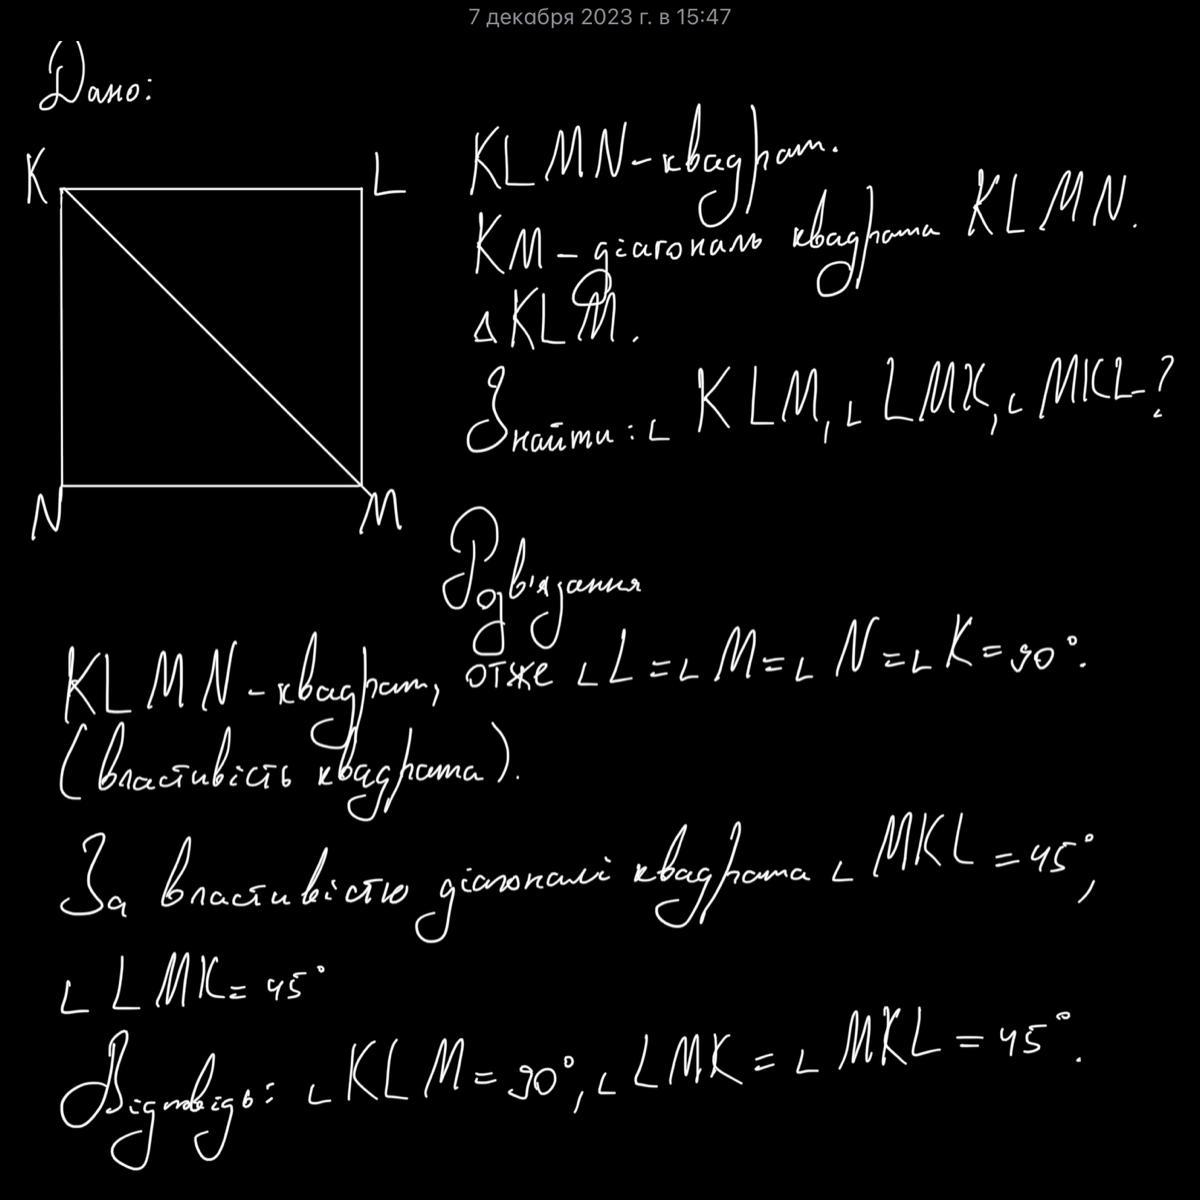 7 декабря 2023 г. в 15:47
Дано:
K L
KLMN-квадрат.
KM - діагональ квадрата KLMN.
△KLM.
Знайти: ∟KLM, ∟LMK, ∟MKL-?
N M
Розв'язання
KLMN-квадрат, отже ∟L=∟M=∟N=∟K=90°.
(властивість квадрата).
За властивістю діагоналі квадрата ∟MKL=45°,
∟LMK=45°
Відповідь: ∟KLM=90°, ∟LMK=∟MKL=45°.